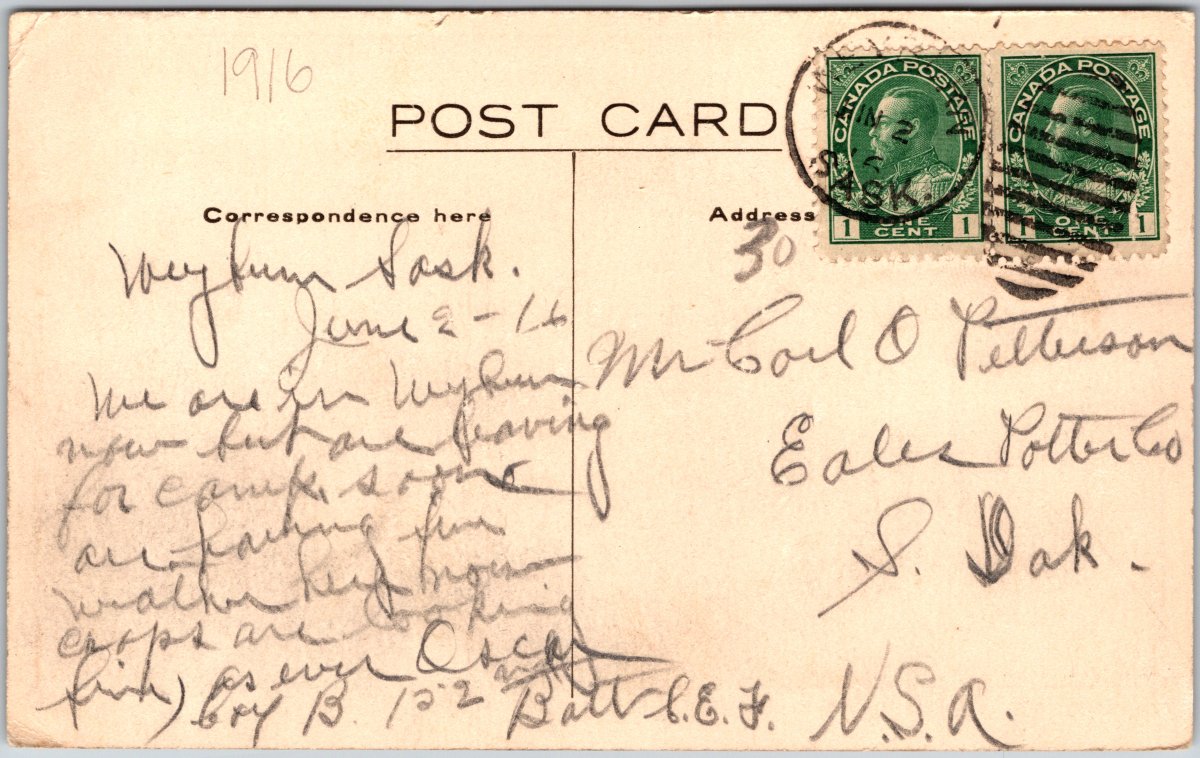 1916
POST CARD
Correspondence here
Address
30
CANADA POSTAGE
ONE
1 CENT 1
CANADA POSTAGE
ONE
1 CENT 1
WEYBURN
2
SASK.
Weyburn Sask.
June 2 - 16
We are in Weyburn
now but are leaving
for camp soon
are having fine
weather here now
crops are looking
fine) as ever Oscar
Coy B. 152nd Batt C.E.F.
Mr Carl O Petterson
Eales Potter Co
S. Dak.
U.S.A.